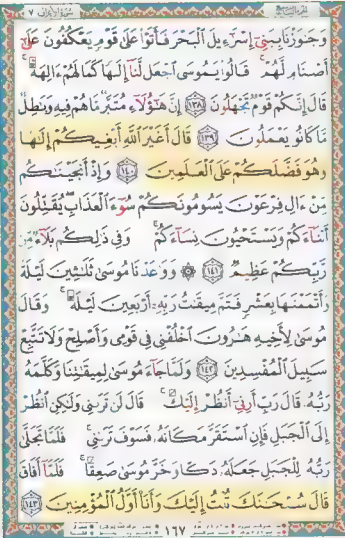 سورة الأعراف ٧
وَجَٰوَزْنَا بِبَنِىٓ إِسْرَٰٓءِيلَ ٱلْبَحْرَ فَأَتَوْا۟ عَلَىٰ قَوْمٍ يَعْكُفُونَ عَلَىٰٓ
أَصْنَامٍ لَّهُمْ ۚ قَالُوا۟ يَٰمُوسَى ٱجْعَل لَّنَآ إِلَٰهًا كَمَا لَهُمْ ءَالِهَةٌ ۚ
قَالَ إِنَّكُمْ قَوْمٌ تَجْهَلُونَ ١٣٨ إِنَّ هَٰٓؤُلَآءِ مُتَبَّرٌ مَّا هُمْ فِيهِ وَبَٰطِلٌ
مَّا كَانُوا۟ يَعْمَلُونَ ١٣٩ قَالَ أَغَيْرَ ٱللَّهِ أَبْغِيكُمْ إِلَٰهًا
وَهُوَ فَضَّلَكُمْ عَلَى ٱلْعَٰلَمِينَ ١٤٠ وَإِذْ أَنجَيْنَٰكُم
مِّنْ ءَالِ فِرْعَوْنَ يَسُومُونَكُمْ سُوٓءَ ٱلْعَذَابِ ۖ يُقَتِّلُونَ
أَبْنَآءَكُمْ وَيَسْتَحْيُونَ نِسَآءَكُمْ ۚ وَفِى ذَٰلِكُم بَلَآءٌ مِّن
رَّبِّكُمْ عَظِيمٌ ١٤١ ۞ وَوَٰعَدْنَا مُوسَىٰ ثَلَٰثِينَ لَيْلَةً
وَأَتْمَمْنَٰهَا بِعَشْرٍ فَتَمَّ مِيقَٰتُ رَبِّهِۦٓ أَرْبَعِينَ لَيْلَةً ۚ وَقَالَ
مُوسَىٰ لِأَخِيهِ هَٰرُونَ ٱخْلُفْنِى فِى قَوْمِى وَأَصْلِحْ وَلَا تَتَّبِعْ
سَبِيلَ ٱلْمُفْسِدِينَ ١٤٢ وَلَمَّا جَآءَ مُوسَىٰ لِمِيقَٰتِنَا وَكَلَّمَهُۥ
رَبُّهُۥ قَالَ رَبِّ أَرِنِىٓ أَنظُرْ إِلَيْكَ ۚ قَالَ لَن تَرَىٰنِى وَلَٰكِنِ ٱنظُرْ
إِلَى ٱلْجَبَلِ فَإِنِ ٱسْتَقَرَّ مَكَانَهُۥ فَسَوْفَ تَرَىٰنِى ۚ فَلَمَّا تَجَلَّىٰ
رَبُّهُۥ لِلْجَبَلِ جَعَلَهُۥ دَكًّا وَخَرَّ مُوسَىٰ صَعِقًا ۚ فَلَمَّآ أَفَاقَ
قَالَ سُبْحَٰنَكَ تُبْتُ إِلَيْكَ وَأَنَا۠ أَوَّلُ ٱلْمُؤْمِنِينَ ١٤٣
١٦٧